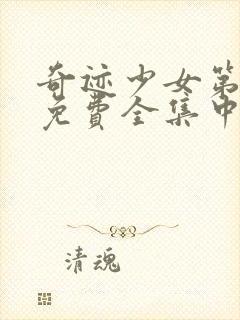 奇迹少女第
免費全集中
清魂